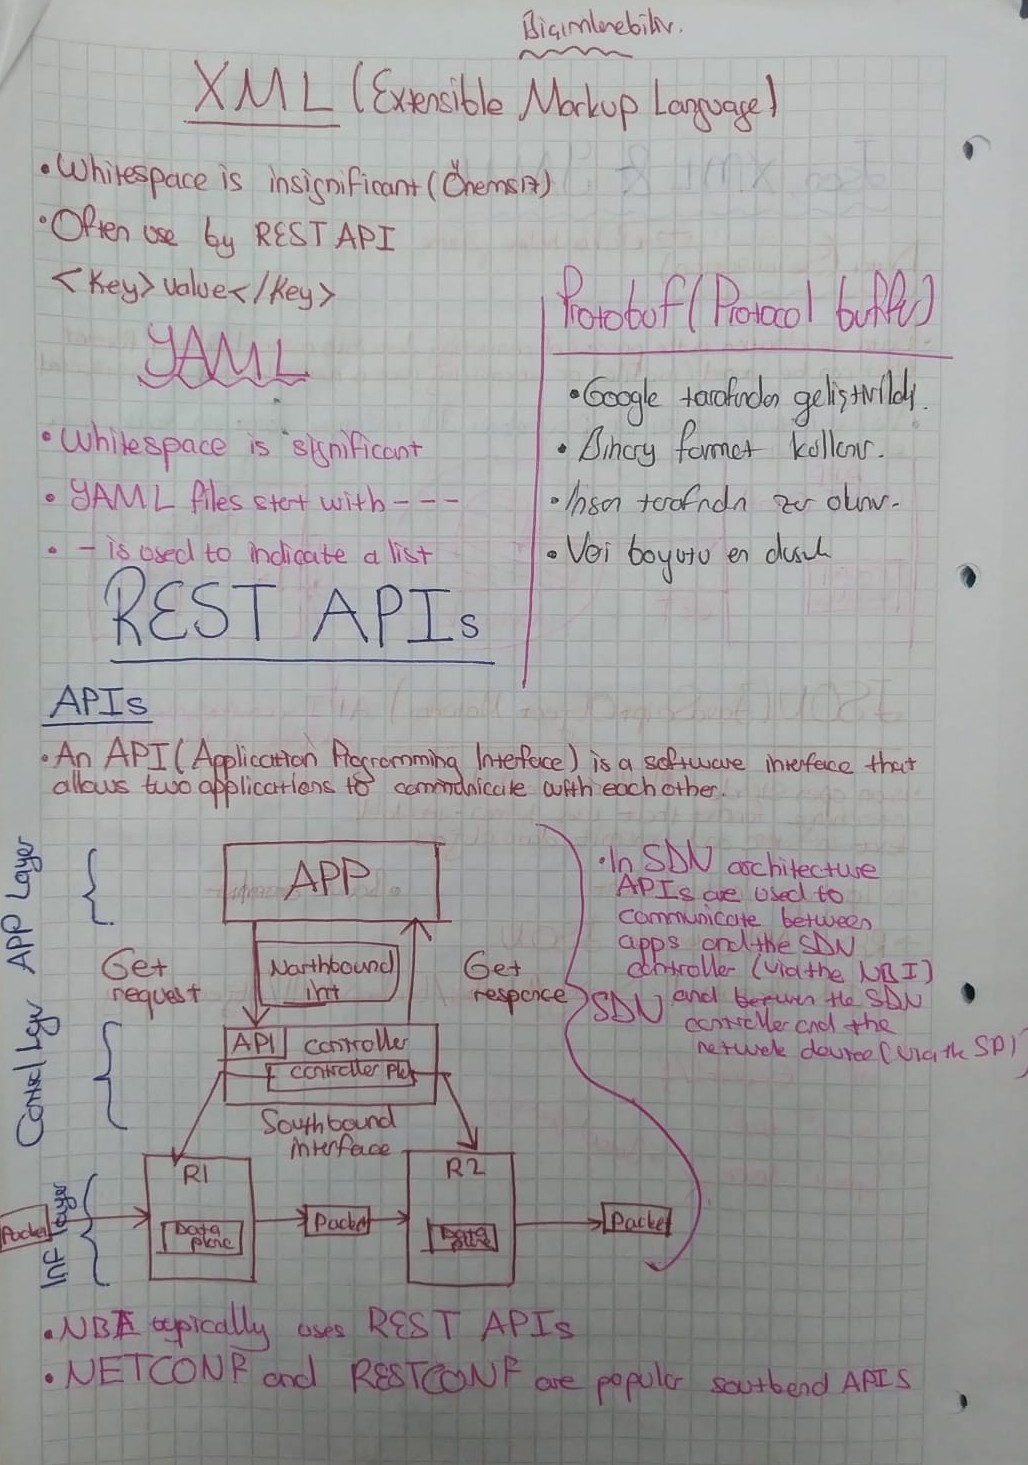 Biçimlenebilir.
XML (Extensible Markup Language)
• Whitespace is insignificant (Önemsiz)
• Often use by REST API
<key>value</key>
YAML
• Whitespace is significant
• YAML files start with ---
• - is used to indicate a list
Protobuf (Protocol buffer)
• Google tarafından geliştirildi.
• Binary format kullanır.
• İnsan tarafından zor okunur.
• Veri boyutu en düşük
REST APIs
APIs
• An API (Application Programming Interface) is a software interface that
allows two applications to communicate with each other.
APP Layer
APP
Get
request
Northbound
int
Get
response
Control Layer
API
controller
controller
Southbound
interface
Inf layer
Packet
R1
Data
plane
Packet
R2
Data
Packet
• In SDN architecture
APIs are used to
communicate between
apps and the SDN
controller (via the NBI)
SDN and between the SDN
controller and the
network device (via the
• NBI typically uses REST APIs
• NETCONF and RESTCONF are popular southbend APIS